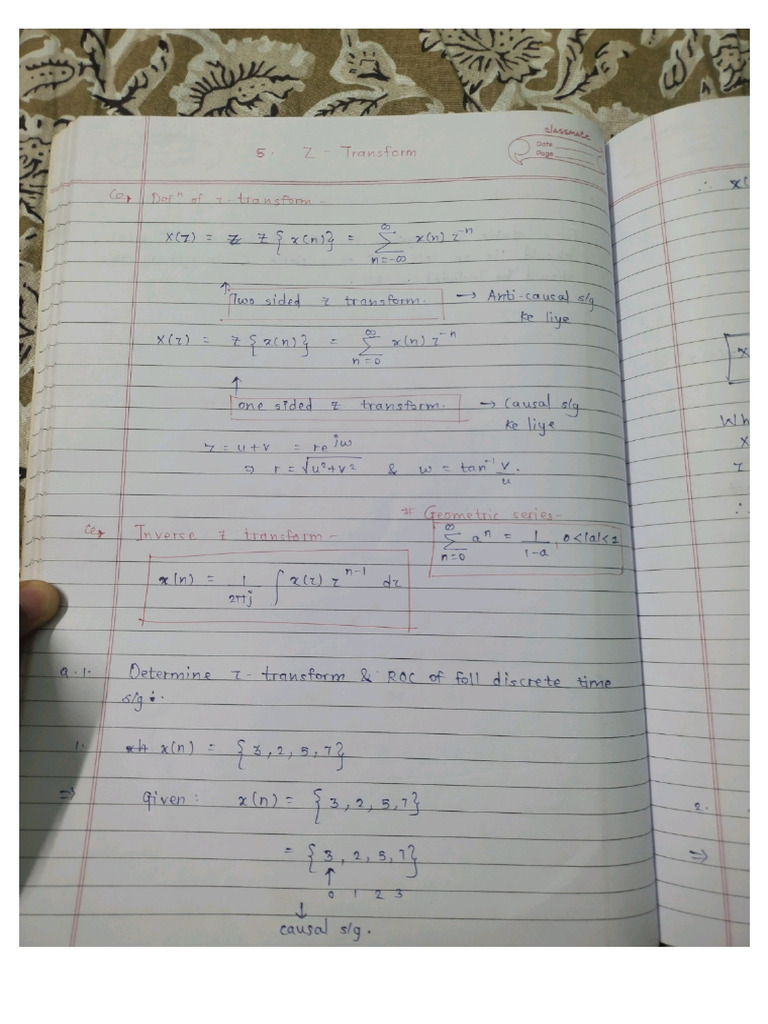 classmate
Date
Page
5. Z - Transform
Defⁿ of z-transform -
X(z) = Z { x(n)} = ∞ Σ n=-∞ x(n) z⁻ⁿ
Two sided z transform. → Anti-causal s/g
ke liye
X(z) = Z { x(n) } = ∞ Σ n=0 x(n) z⁻ⁿ
one sided z transform. → causal s/g
ke liye
z = u+v = re^jω
⇒ r = √u²+v² & ω = tan⁻¹ v/u.
# Geometric series-
∞ Σ n=0 aⁿ = 1/1-a, 0<|a|<1
Inverse z transform -
x(n) = 1/2πj ∫ x(z) z^n-1 dz
Q.1. Determine z-transform & ROC of foll discrete time
s/g:.
1. x(n) = {3, 2, 5, 7}
⇒ Given: x(n) = {3, 2, 5, 7}
= {3, 2, 5, 7}
↑
0 1 2 3
↓
causal s/g.
∴ x(
x
Wh
x
z
∴
2.
⇒